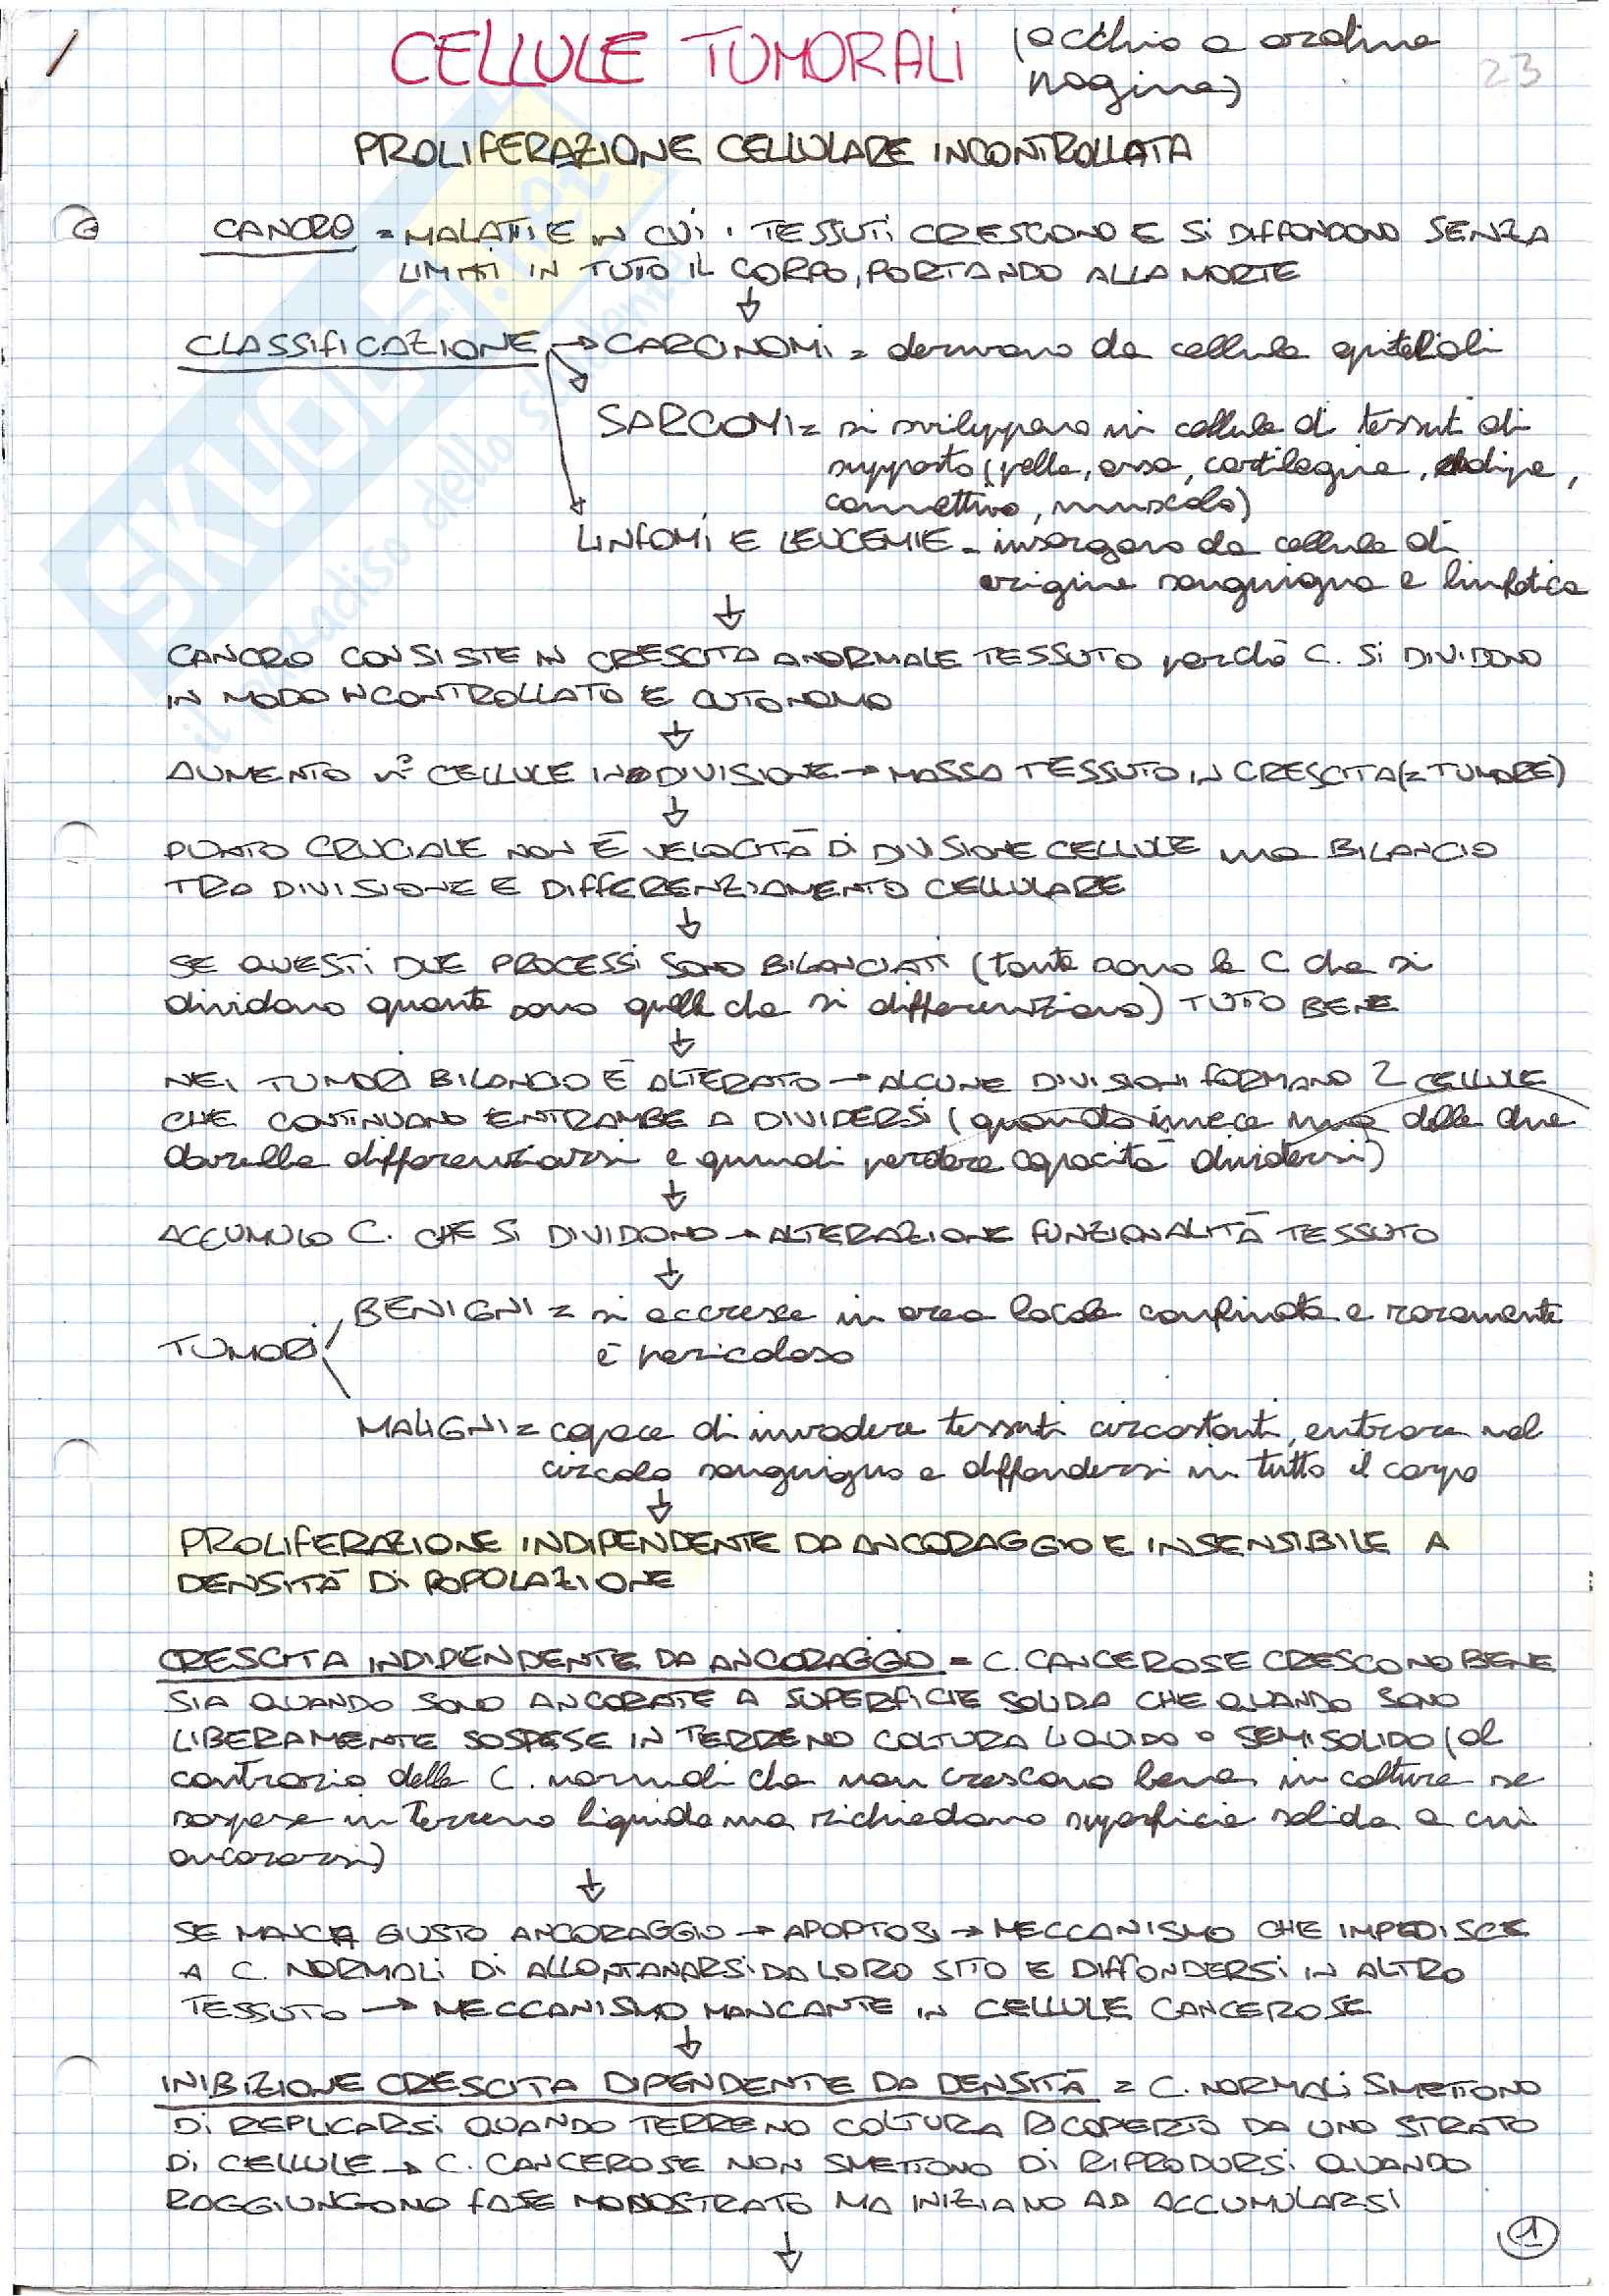 CELLULE TUMORALI (occhio a ordine
pagine)
23
PROLIFERAZIONE CELLULARE INCONTROLLATA
CANCRO = MALATTIE IN CUI I TESSUTI CRESCONO E SI DIFFONDONO SENZA
LIMITI IN TUTTO IL CORPO, PORTANDO ALLA MORTE
↓
CLASSIFICAZIONE → CARCINOMI = derivano da cellule epiteliali
SARCOMI = si sviluppano in cellule di tessuti di
supporto (pelle, ossa, cartilagine, adipe,
connettivo, muscolo)
LINFOMI E LEUCEMIE = insorgono da cellule di
origine sanguigna e linfatica
↓
CANCRO CONSISTE IN CRESCITA ANORMALE TESSUTO perchè C. SI DIVIDONO
IN MODO INCONTROLLATO E AUTONOMO
↓
AUMENTO n° CELLULE IN DIVISIONE → MASSA TESSUTO IN CRESCITA (= TUMORE)
↓
PUNTO CRUCIALE NON È VELOCITÀ DI DIVISIONE CELLULE ma BILANCIO
TRA DIVISIONE E DIFFERENZIAMENTO CELLULARE
↓
SE QUESTI DUE PROCESSI SONO BILANCIATI (tante sono le C che si
dividono quante sono quelle che si differenziano) TUTTO BENE
↓
NEI TUMORI BILANCIO È ALTERATO → ALCUNE DIVISIONI FORMANO 2 CELLULE
CHE CONTINUANO ENTRAMBE A DIVIDERSI (quando invece una delle due
dovrebbe differenziarsi e quindi perdere capacità dividersi)
↓
ACCUMULO C. CHE SI DIVIDONO → ALTERAZIONE FUNZIONALITÀ TESSUTO
↓
BENIGNI = si accresce in area locale confinata e raramente
è pericoloso
TUMORI
MALIGNI = capace di invadere tessuti circostanti, entrare nel
circolo sanguigno e diffondersi in tutto il corpo
↓
PROLIFERAZIONE INDIPENDENTE DA ANCORAGGIO E INSENSIBILE A
DENSITÀ DI POPOLAZIONE
CRESCITA INDIPENDENTE DA ANCORAGGIO = C. CANCEROSE CRESCONO BENE
SIA QUANDO SONO ANCORATE A SUPERFICIE SOLIDA CHE QUANDO SONO
LIBERAMENTE SOSPESE IN TERRENO COLTURA LIQUIDO O SEMISOLIDO (al
contrario delle C. normali che non crescono bene in colture se
sospese in terreno liquido ma richiedono superficie solida a cui
ancorarsi)
↓
SE MANCA GIUSTO ANCORAGGIO → APOPTOSI → MECCANISMO CHE IMPEDISCE
A C. NORMALI DI ALLONTANARSI DA LORO SITO E DIFFONDERSI IN ALTRO
TESSUTO → MECCANISMO MANCANTE IN CELLULE CANCEROSE
↓
INIBIZIONE CRESCITA DIPENDENTE DA DENSITÀ = C. NORMALI SMETTONO
DI REPLICARSI QUANDO TERRENO COLTURA RICOPERTO DA UNO STRATO
DI CELLULE → C. CANCEROSE NON SMETTONO DI RIPRODURSI QUANDO
RAGGIUNGONO FASE MONOSTRATO MA INIZIANO AD ACCUMULARSI
↓
1
SKUOLA.net
il paradiso dello studente